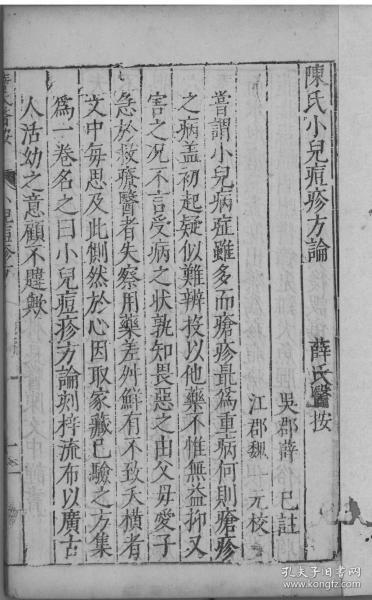 陳氏小兒痘疹方論　薛氏醫按
吳郡薛　已註
江郡　元校
嘗謂小兒病症雖多而瘡疹最為重病何則瘡疹
之病盖初起疑似難辨投以他藥不惟無益抑又
害之况不言受病之狀孰知畏惡之由父母愛子
急於救療醫者失察用藥差舛鮮有不致夭橫者
文中每思及此惻然於心因取家藏已驗之方集
為一卷名之曰小兒痘疹方論刻梓流布以廣古
人活幼之意顧不韙歟
小兒痘疹方
孔夫子旧书网